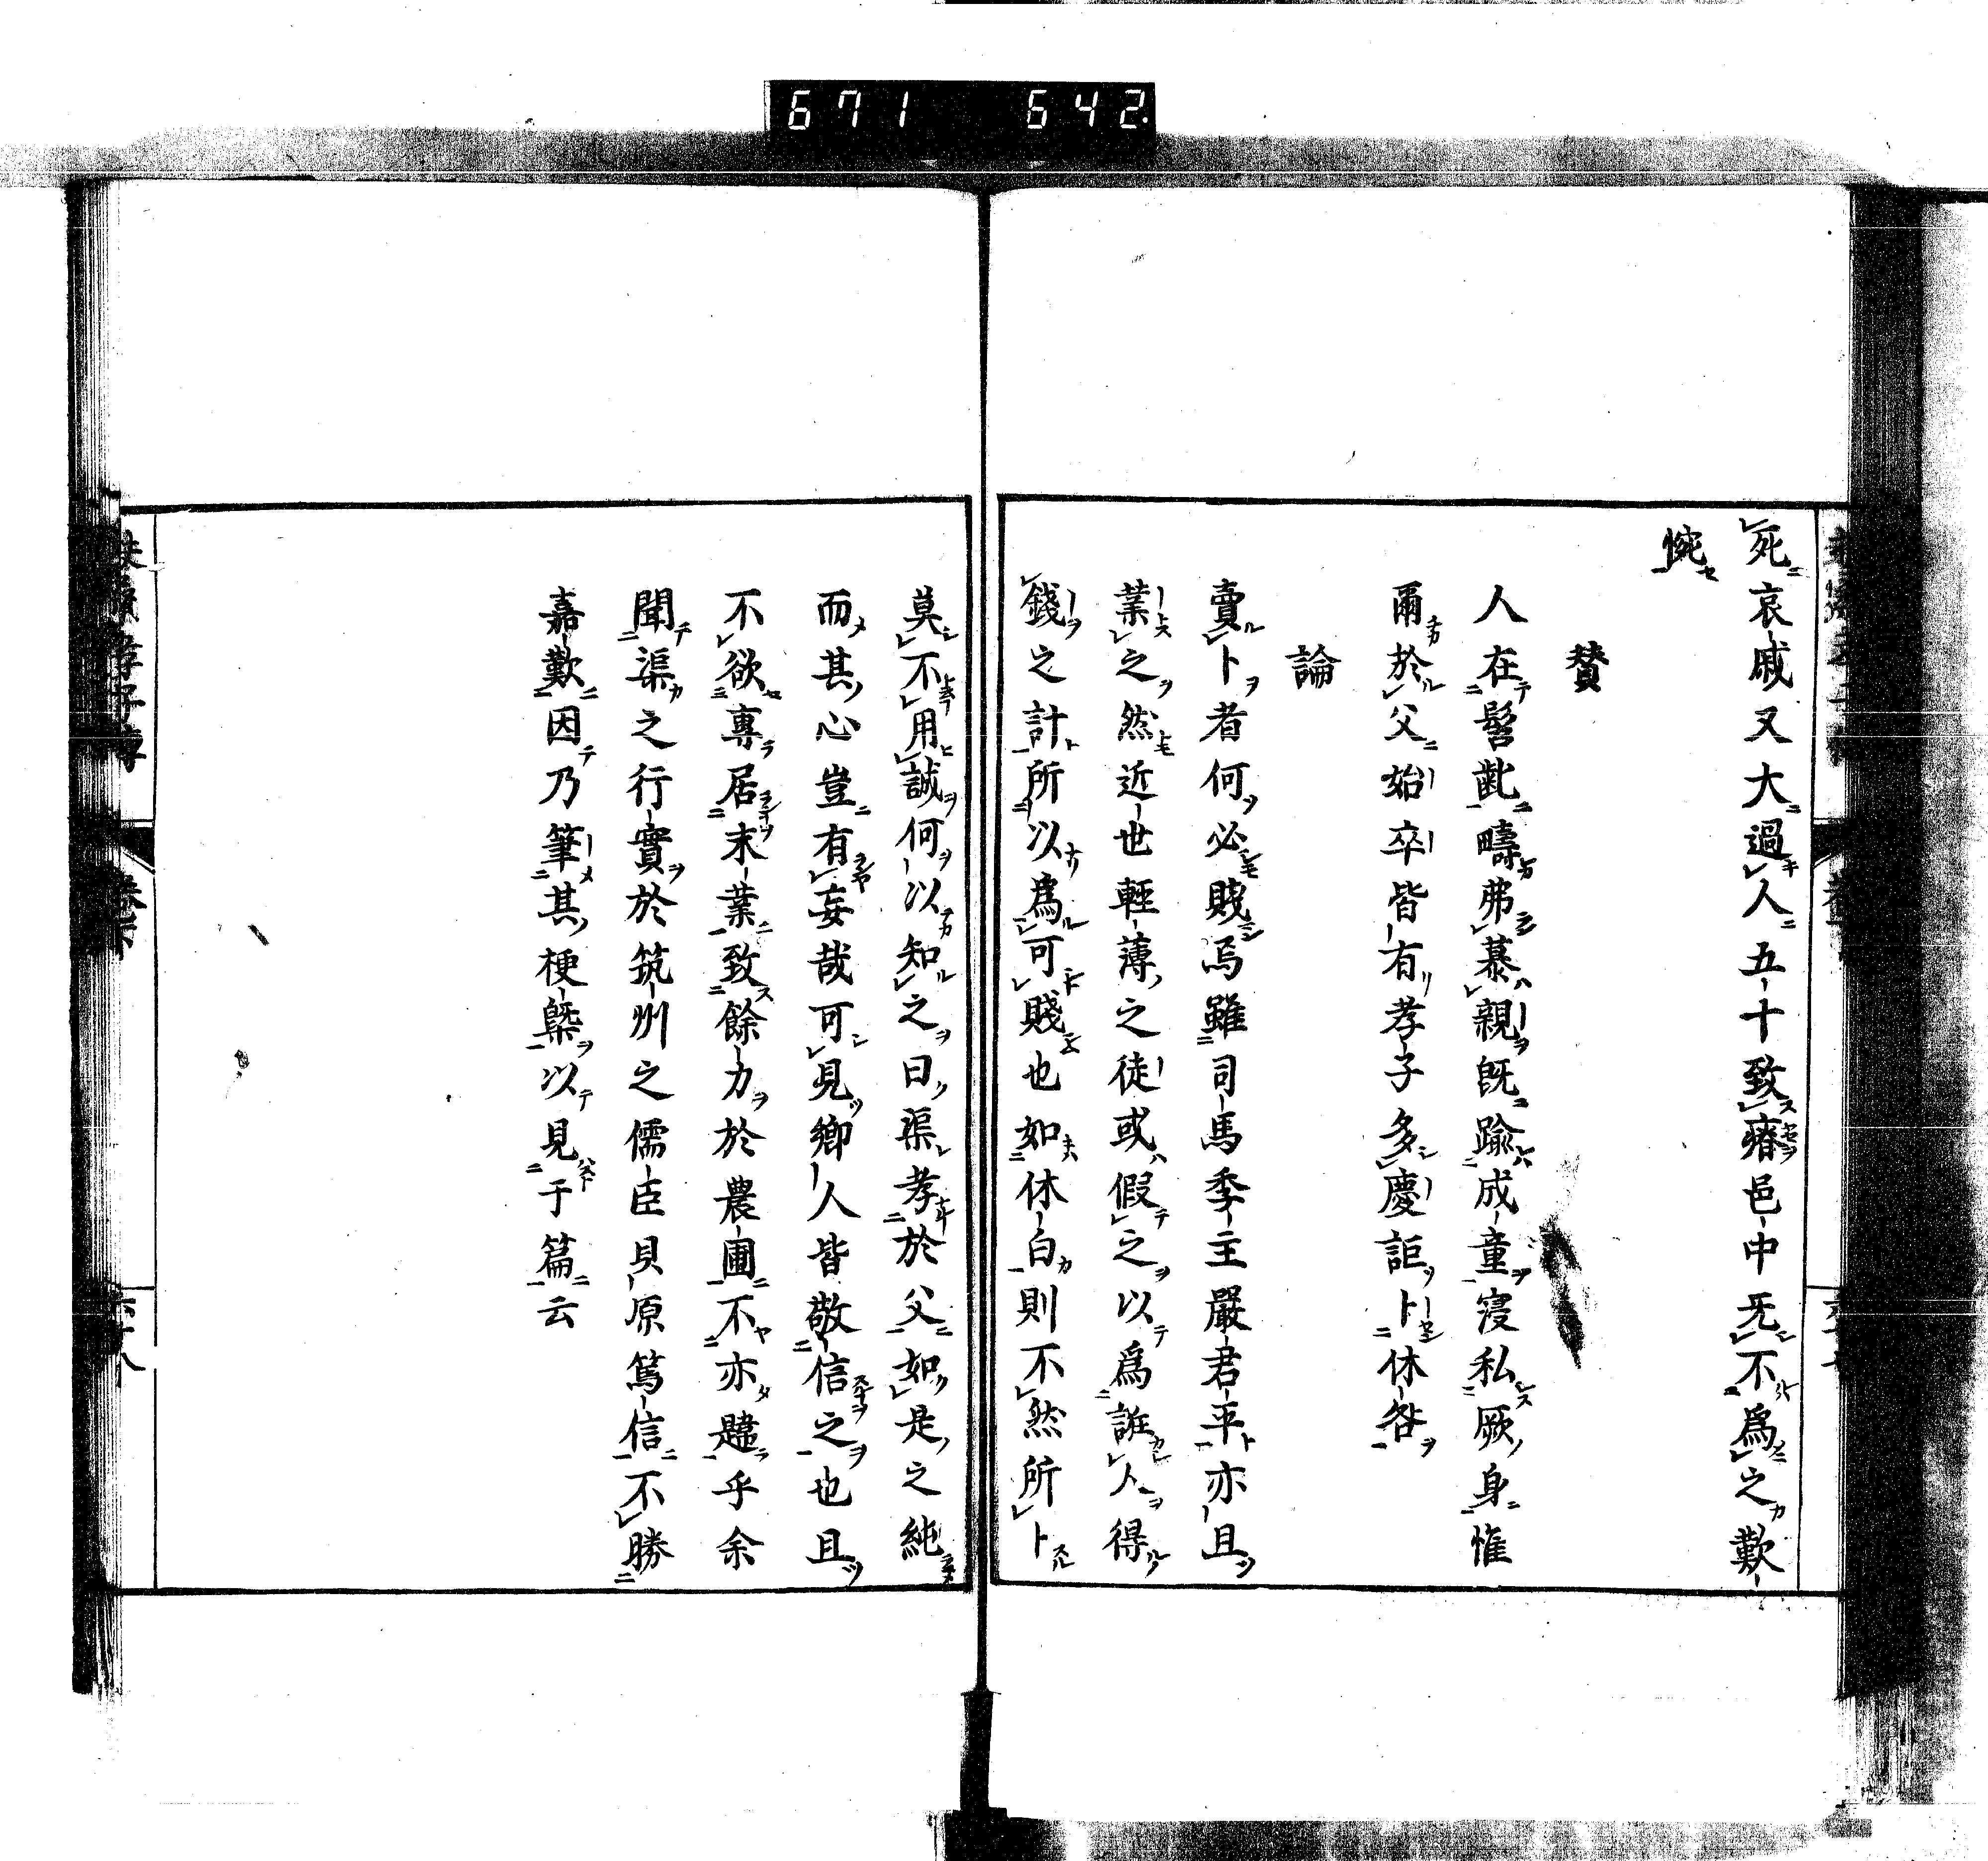 671 642
死哀戚又大過人五十致瘠邑中旡不爲之歎
惋
賛
人在髫齔疇弗慕親既踰成童寖私厥身惟
爾於父始卒皆有孝子多慶詎卜休咎
論
賣卜者何必賤焉雖司馬季主嚴君平亦且
業之然近世輕薄之徒或假之以爲誑人得
錢之計所以爲可賤也如休白則不然所卜
莫不用誠何以知之曰渠孝於父如是之純
而其心豈有妄哉可見鄉人皆敬信之也且
不欲專居末業致餘力於農圃不亦韙乎余
聞渠之行實於筑州之儒臣貝原篤信不勝
嘉歎因乃筆其梗槩以見于篇云